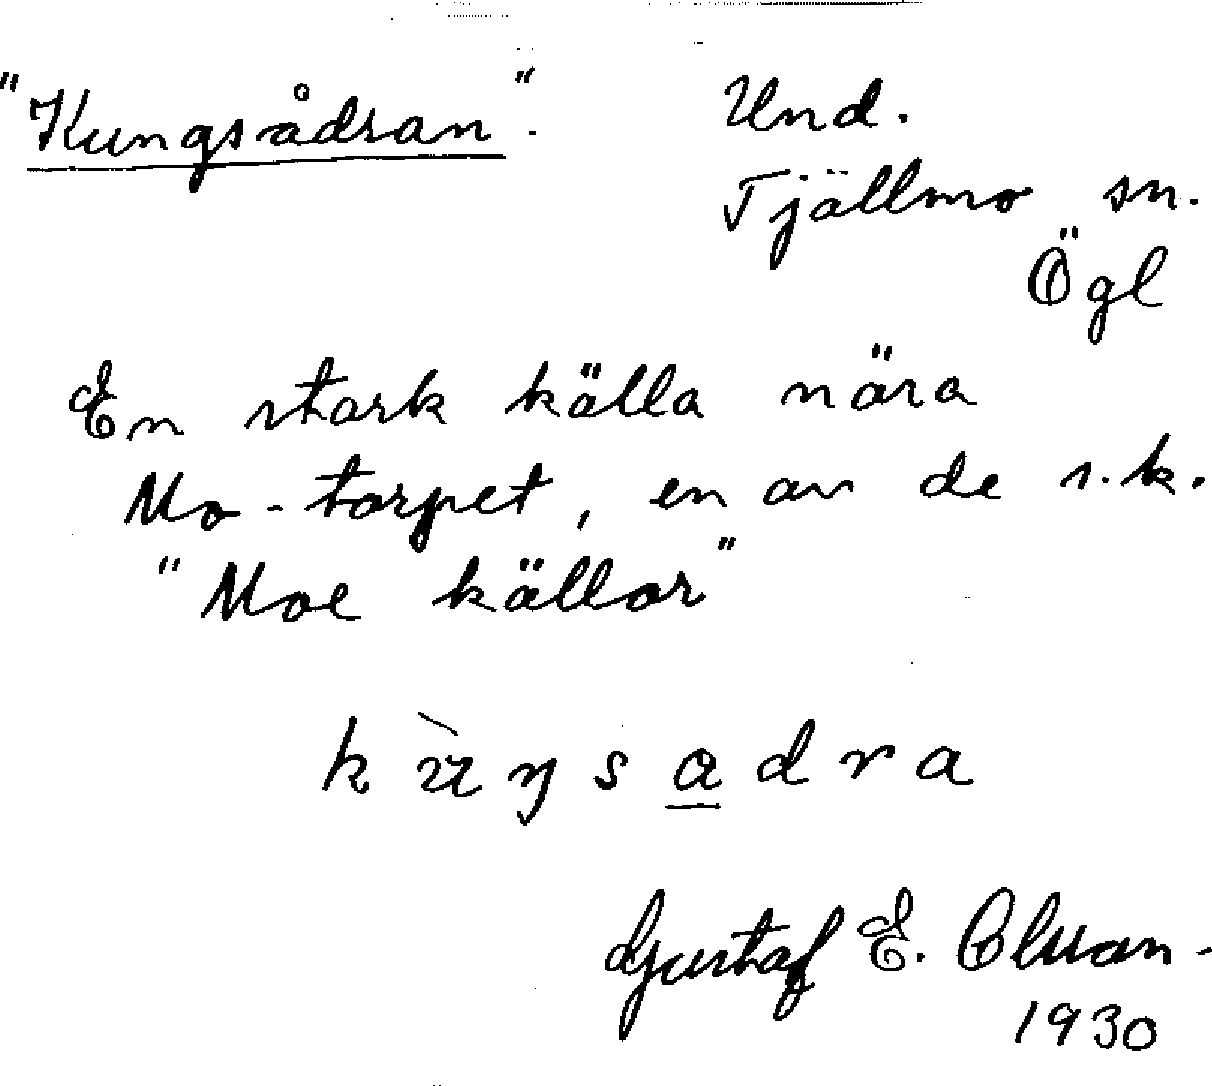 "Kungsådran".
Und.
Tjällmo sn.
Ögl
En stark källa nära
Mo-torpet, en av de s.k.
"Moe källor"
Gustaf E. Olsson.
1930